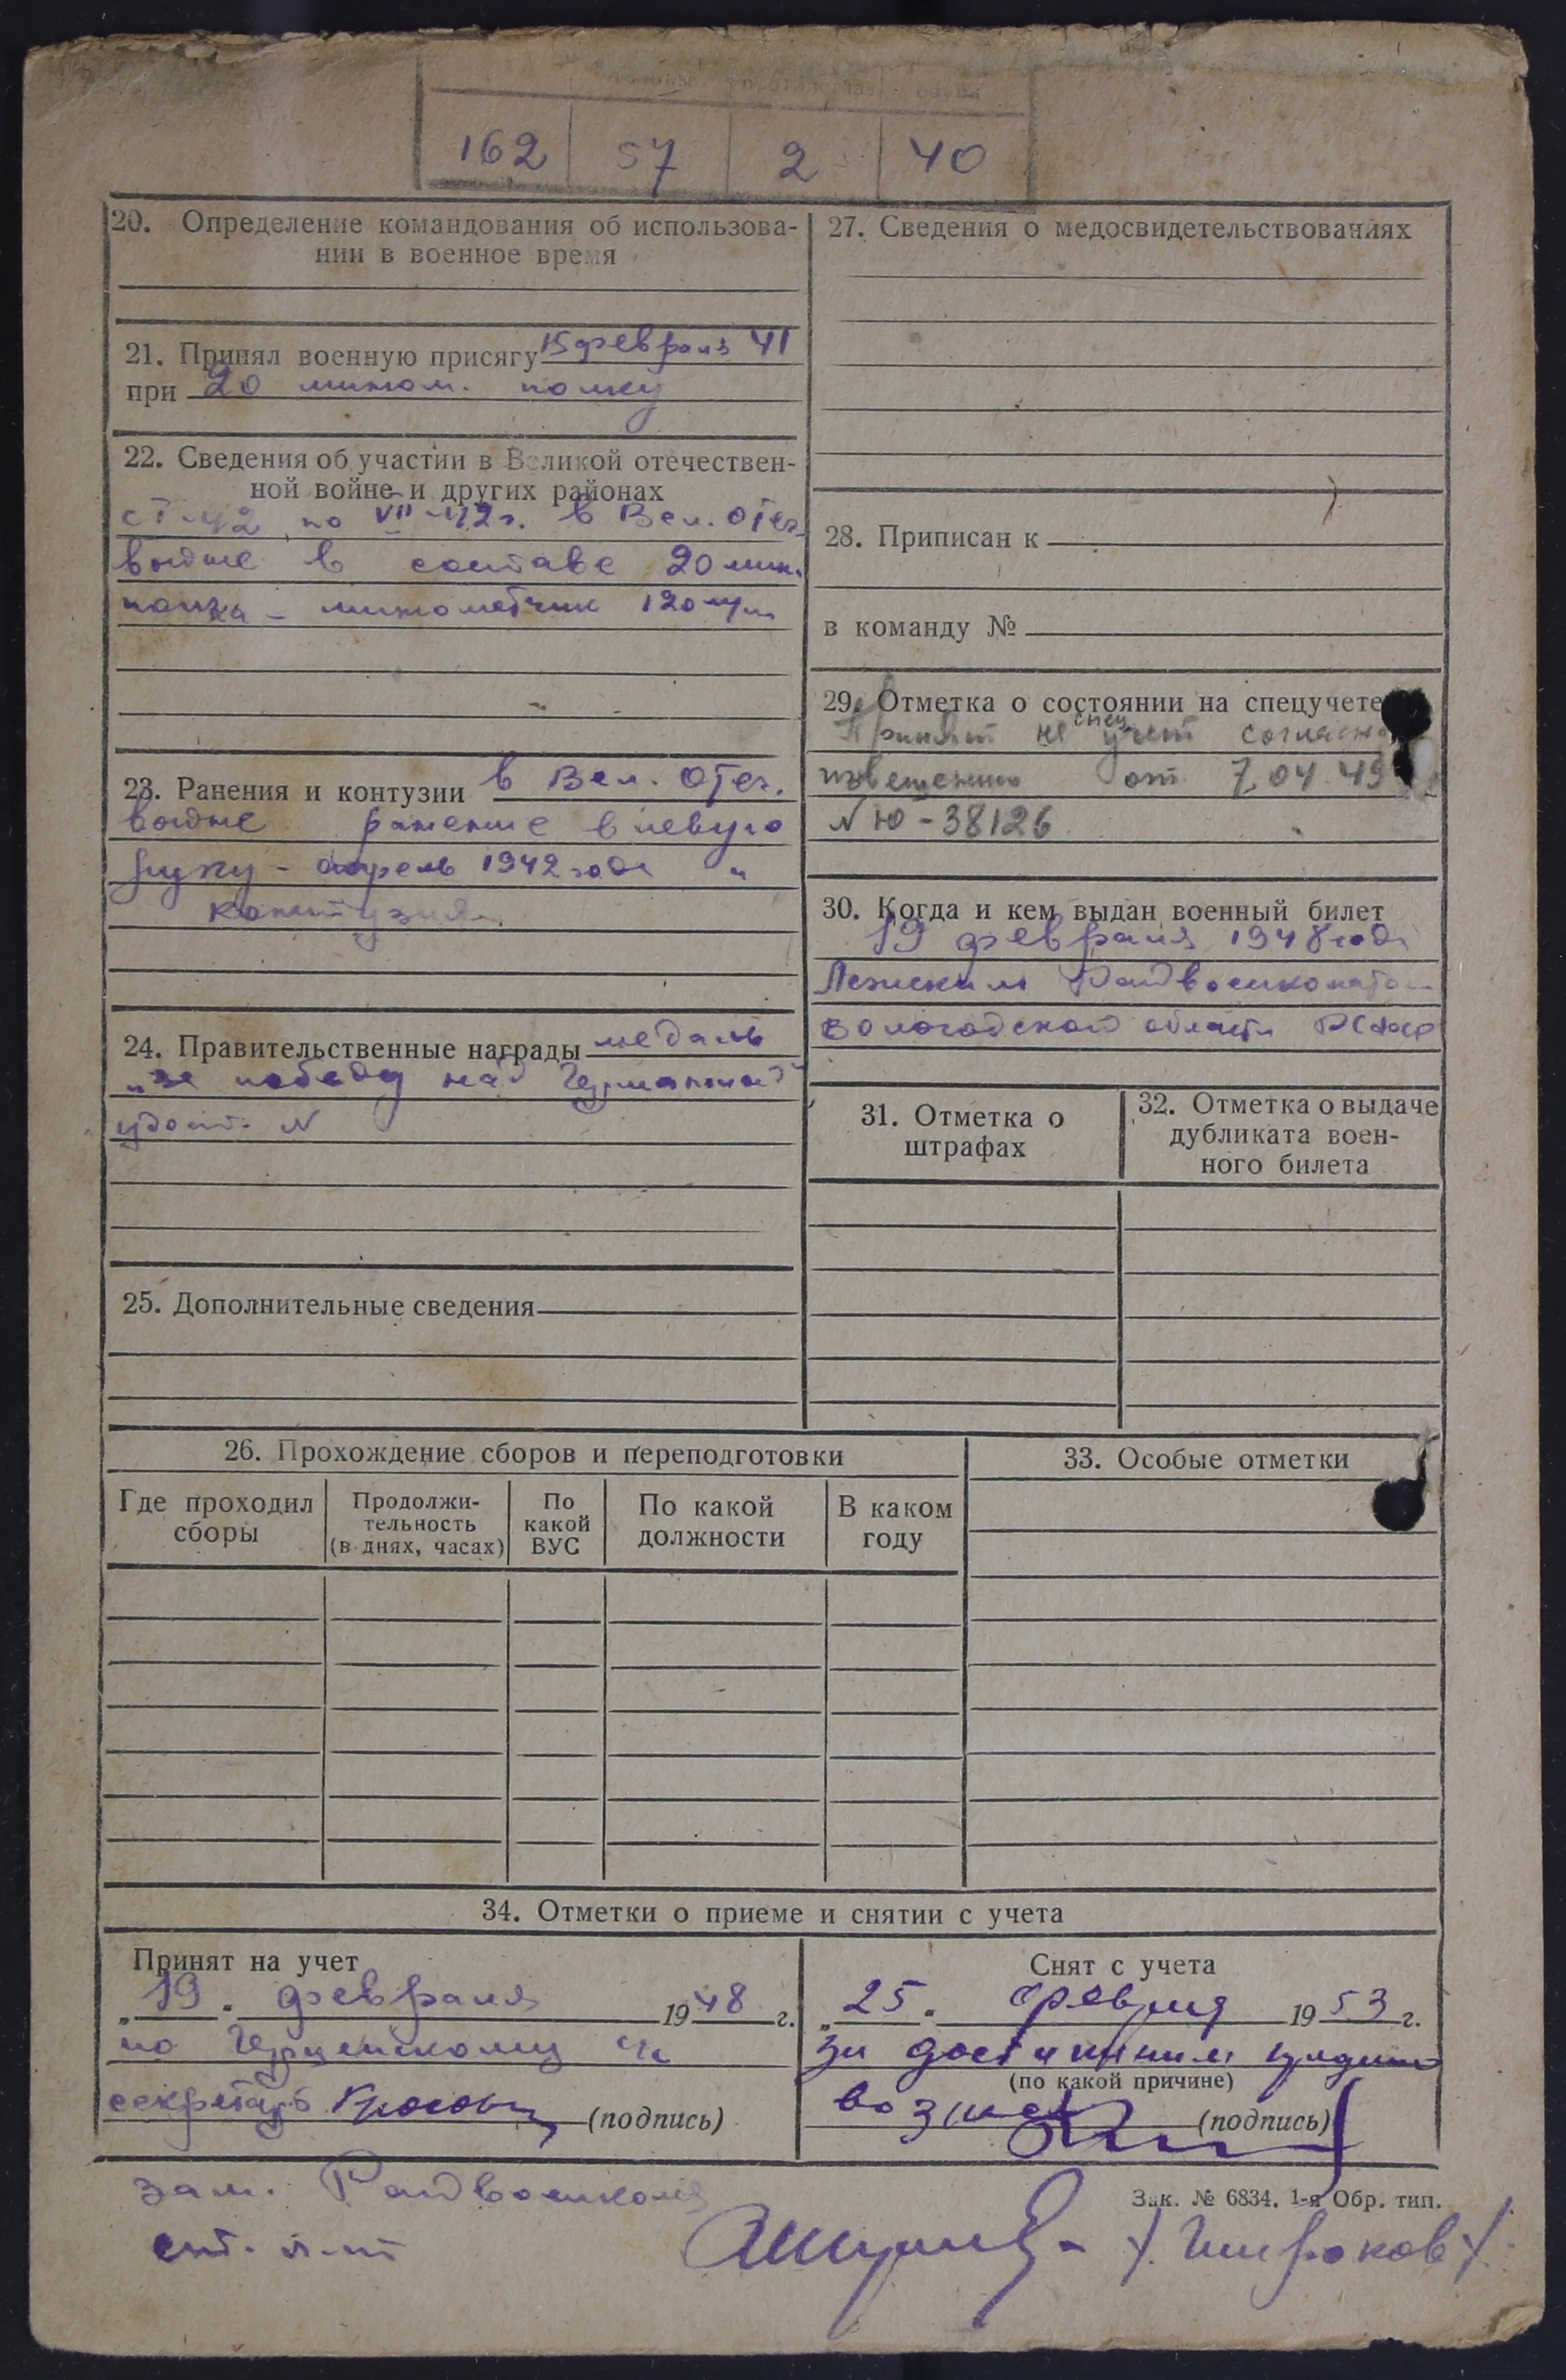 162 57 2 40
20. Определение командования об использова-
нии в военное время
21. Принял военную присягу 15 февраля 41
при 20 мином. полку
22. Сведения об участии в Великой отечествен-
ной войне и других районах
по VII-42г. в Вел. Отеч.
войне в составе 20 мин.
полка - минометчик 120 м/м
23. Ранения и контузии в Вел. Отеч.
войне ранение в левую
руку - апрель 1942 года и
контузия
24. Правительственные награды медаль
„за победу над Германией"
удост. N
25. Дополнительные сведения
26. Прохождение сборов и переподготовки
Где проходил
сборы
Продолжи-
тельность
(в днях, часах)
По
какой
ВУС
По какой
должности
В каком
году
27. Сведения о медосвидетельствованиях
28. Приписан к
в команду №
29. Отметка о состоянии на спецучете
Принят на спец учет согласно
извещению от 7.04.49
N Ю-38126
30. Когда и кем выдан военный билет
19 февраля 1948 года
Лежским Райвоенкоматом
Вологодской области РСФСР
31. Отметка о
штрафах
32. Отметка о выдаче
дубликата воен-
ного билета
33. Особые отметки
34. Отметки о приеме и снятии с учета
Принят на учет
„19" февраля 1948 г.
по
секретарь (подпись)
Снят с учета
„25" февраля 1953 г.
за достижением
(по какой причине)
возраста (подпись)
Зак. № 6834. 1-я Обр. тип.
зам. Райвоенкома
ст. л-нт /Широков/